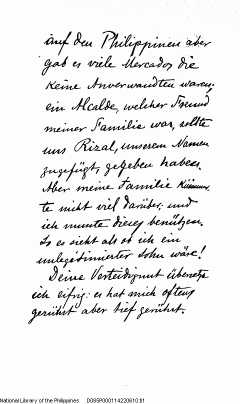 auf den Philippinen aber
gab es viele Mercados die
keine Anverwandten waren;
ein Alcalde, welcher Freund
meiner Familie war, sollte
uns Rizal, unserem Namen
zugefügt, gegeben haben.
Aber meine Familie kümmer-
te nicht viel darüber, und
ich musste dieses benützen.
So es sieht als ob ich ein
unlegitimierter Sohn wäre!
Deine Verteidigung übersetze
ich eifrig: es hat mich oftens
gerührt aber tief gerührt.
National Library of the Philippines